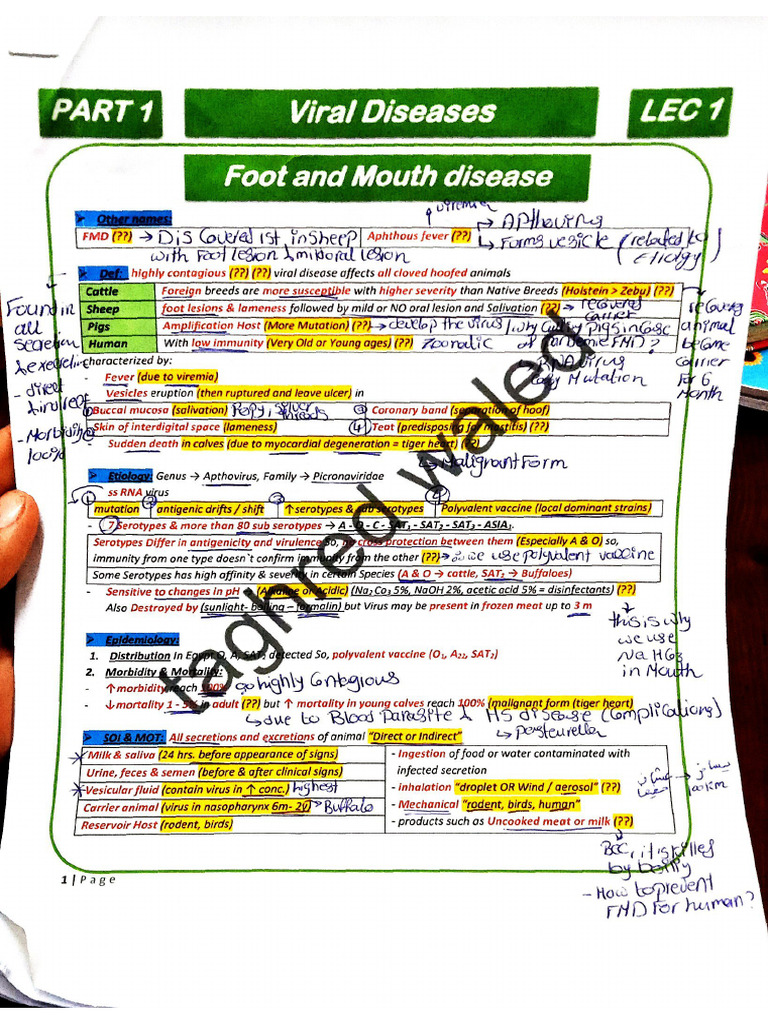 PART 1
Viral Diseases
LEC 1
Foot and Mouth disease
Other names:
viremia
FMD (??) → Discovered 1st in sheep
with Foot lesion & mild oral lesion
Aphthous fever (??)
→ Apthovirus
→ Forms vesicle (related to Etiology)
Def: highly contagious (??) (??) viral disease affects all cloved hoofed animals
Cattle Foreign breeds are more susceptible with higher severity than Native Breeds (Holstein > Zebu) (??)
Sheep foot lesions & lameness followed by mild or NO oral lesion and Salivation (??) → recovered carrier
Pigs Amplification Host (More Mutation) (??) → develop the virus
Human With low immunity (Very Old or Young ages) (??) Zoonotic
why Culling pigs in case of Pandemic FMD?
RNA virus
Mutation
recovery
animal
become
carrier
For 6
Month
Found in
all
secretion
& excretion
- direct
& indirect
- Morbidity
100%
characterized by:
- Fever (due to viremia)
- Vesicles eruption (then ruptured and leave ulcer) in
1 Buccal mucosa (salivation) Ropy, silver threads
3 Coronary band (separation of hoof)
2 Skin of interdigital space (lameness)
4 Teat (predisposing for mastitis) (??)
- Sudden death in calves (due to myocardial degeneration = tiger heart) (??)
→ Malignant Form
Etiology: Genus → Apthovirus, Family → Picronaviridae
ss RNA virus
mutation antigenic drifts / shift ↑serotypes & sub serotypes Polyvalent vaccine (local dominant strains)
- 7 Serotypes & more than 80 sub serotypes → A - O - C - SAT₁ - SAT₂ - SAT₃ - ASIA₁.
Serotypes Differ in antigenicity and virulence so, no cross protection between them (Especially A & O) so,
immunity from one type doesn`t confirm immunity from the other (??) → so we use polyvalent vaccine
Some Serotypes has high affinity & severity in certain Species (A & O → cattle, SAT₂ → Buffaloes)
- Sensitive to changes in pH (Alkaline or Acidic) (Na₂ Co₃ 5%, NaOH 2%, acetic acid 5% = disinfectants) (??)
Also Destroyed by (sunlight- boiling – formalin) but Virus may be present in frozen meat up to 3 m
this is why
we use
NaHCO3
in Mouth
Epidemiology:
1. Distribution In Egypt O, A, SAT₂ detected So, polyvalent vaccine (O₁, A₂₂, SAT₂)
2. Morbidity & Mortality:
- ↑morbidity reach 100% so highly Contagious
- ↓mortality 1 - 5% in adult (??) but ↑ mortality in young calves reach 100% (malignant form (tiger heart)
→ due to Blood Parasite & HS disease (Complications)
→ pasteurella
SOI & MOT: All secretions and excretions of animal "Direct or Indirect"
Milk & saliva (24 hrs. before appearance of signs)
Urine, feces & semen (before & after clinical signs)
Vesicular fluid (contain virus in ↑ conc.) highest
Carrier animal (virus in nasopharynx 6m- 2y) → Buffalo
Reservoir Host (rodent, birds)
- Ingestion of food or water contaminated with
infected secretion
- inhalation "droplet OR Wind / aerosol" (??)
- Mechanical "rodent, birds, human"
- products such as Uncooked meat or milk (??)
Bec, it is killed
by boiling
- How to prevent
FMD For human?
1 | Page
taghred waled